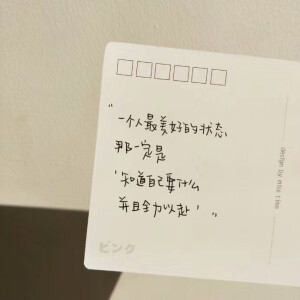 "一个人最美好的状态
那一定是
'知道自己要什么
并且全力以赴'"
ピンク